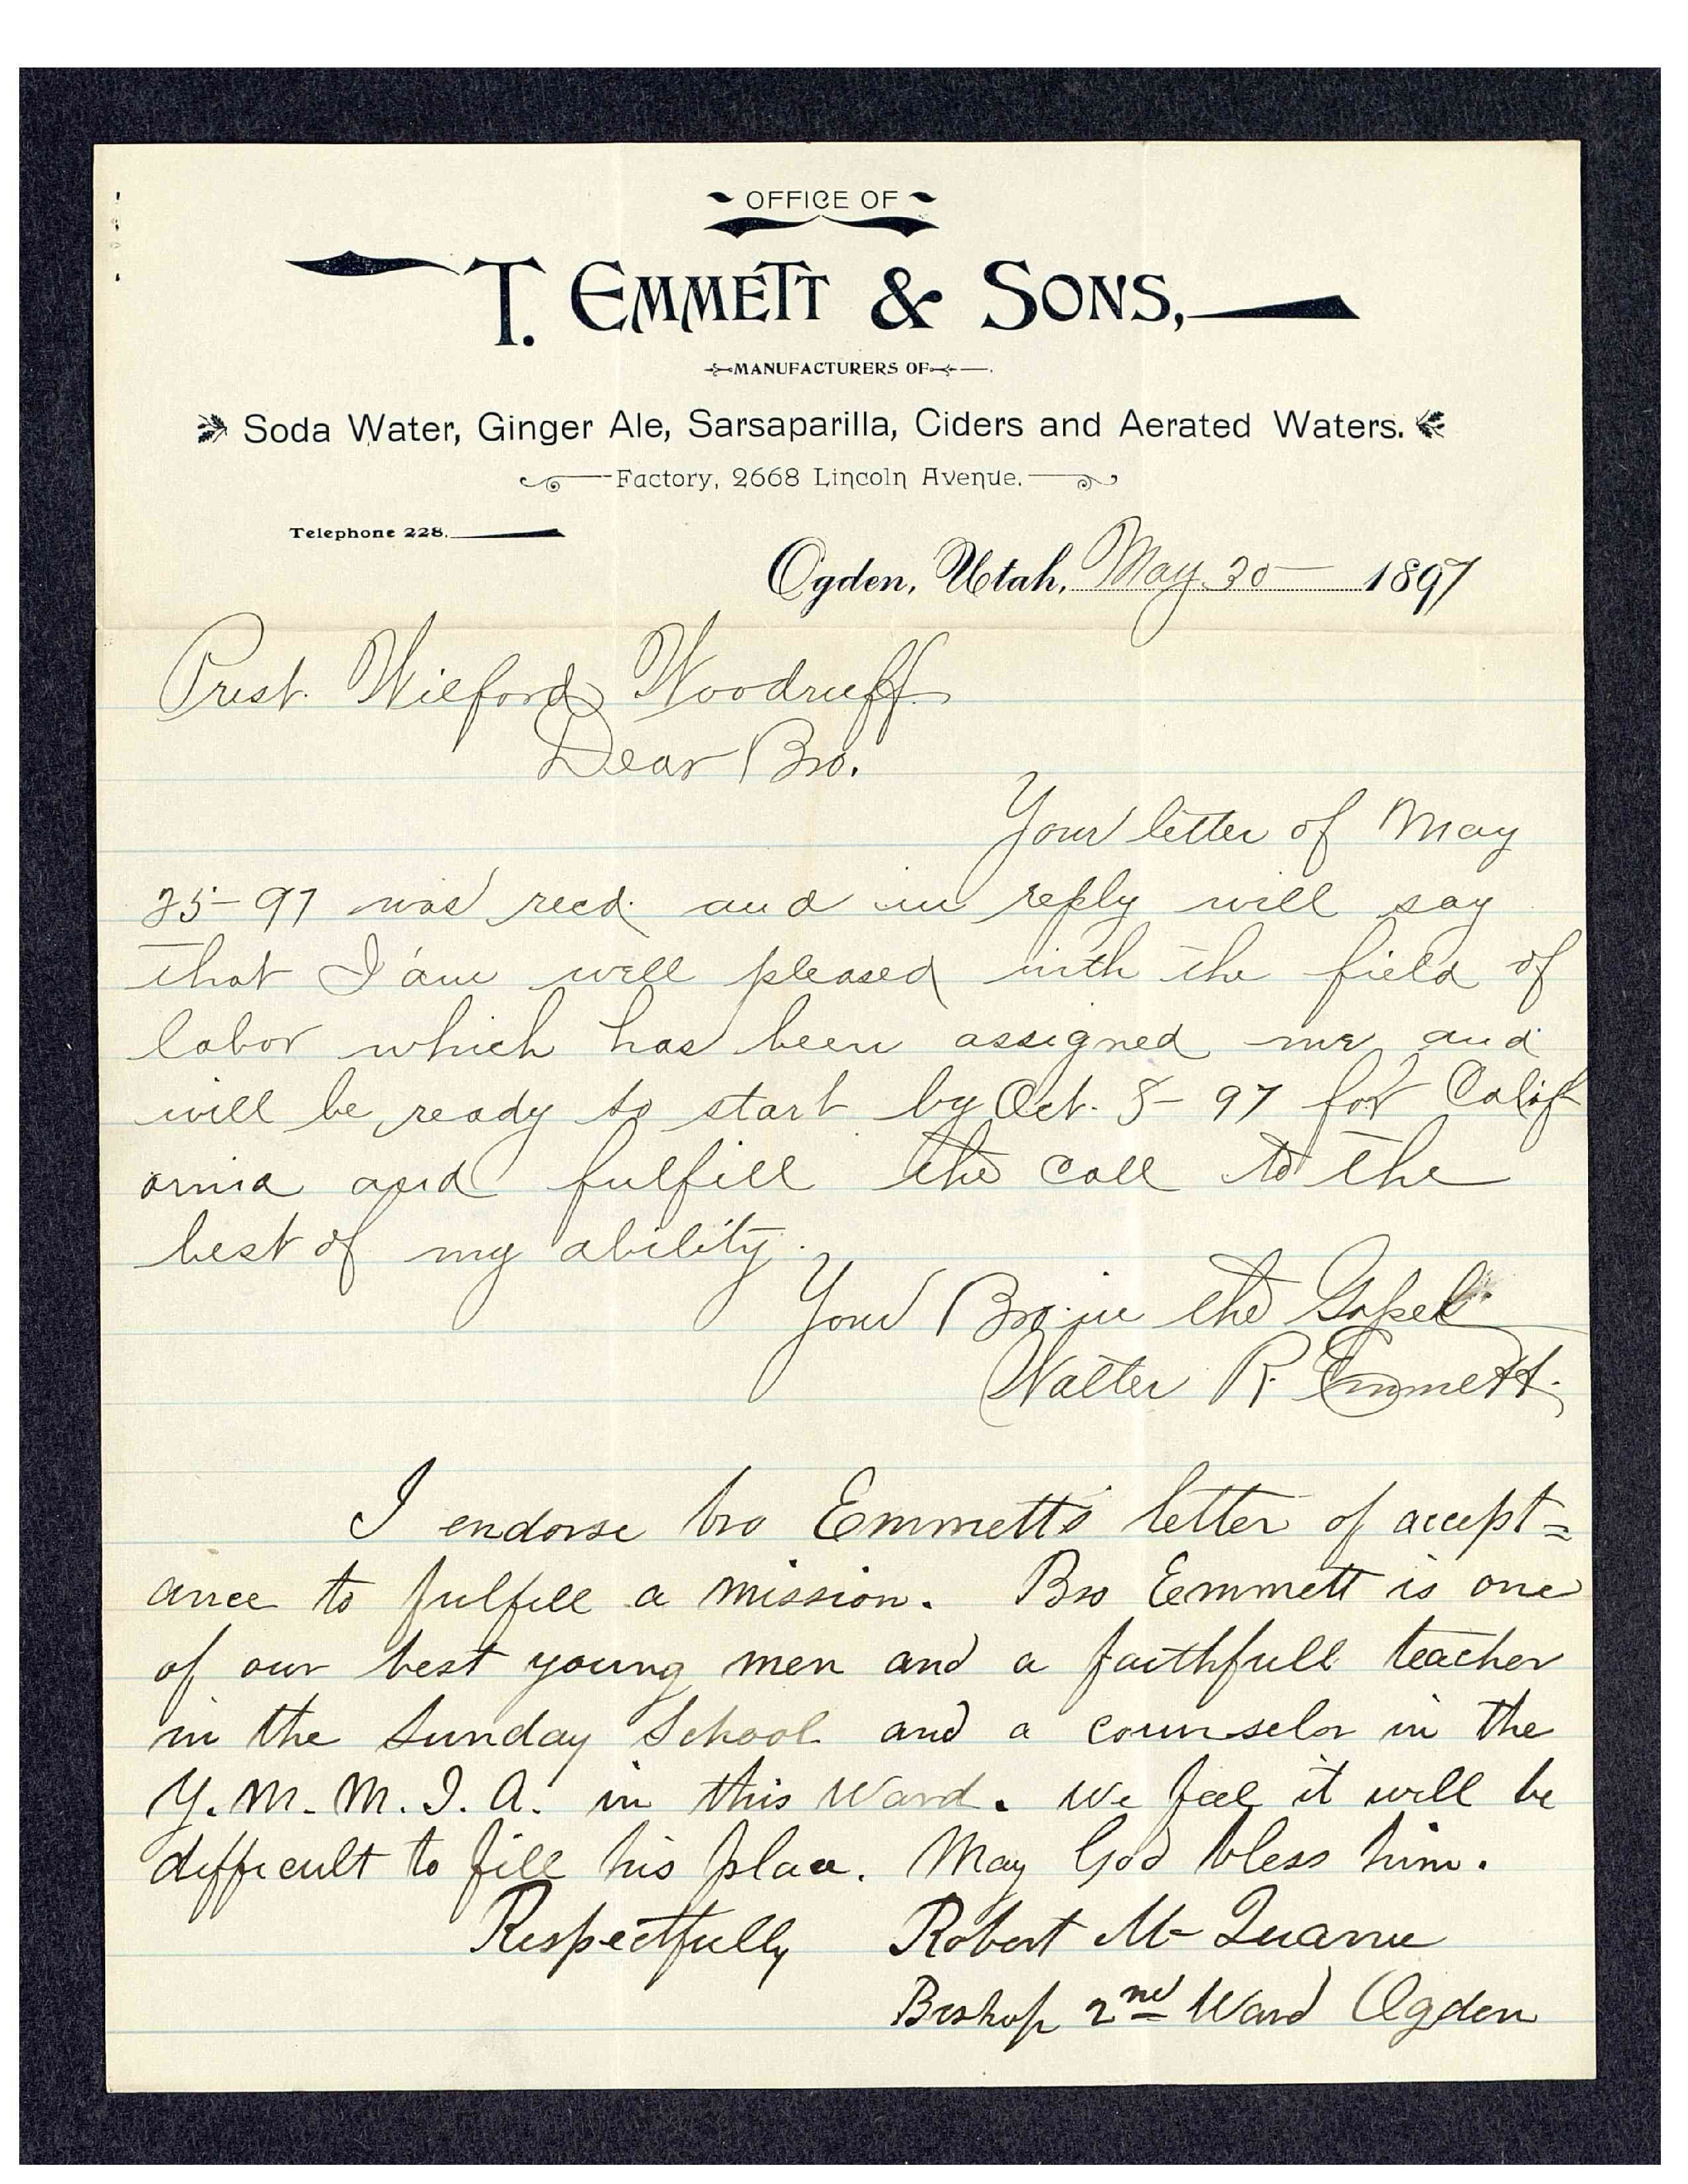 OFFICE OF
T. EMMETT & SONS,
MANUFACTURERS OF
Soda Water, Ginger Ale, Sarsaparilla, Ciders and Aerated Waters.
Factory, 2668 Lincoln Avenue.
Telephone 228.
Ogden, Utah, May 30 - 1897
Prest. Wilford Woodruff
Dear Bro.
Your letter of May
25-97 was recd. and in reply will say
that I am well pleased with the field of
labor which has been assigned me and
will be ready to start by Oct. 8-97 for Calif
ornia and fulfill the call to the
best of my ability.
Your Bro. in the Gospel
Walter R. Emmett.
I endorse bro Emmett's letter of accept=
ance to fulfill a mission. Bro Emmett is one
of our best young men and a faithfull teacher
in the Sunday School and a counselor in the
Y.M.M.I.A. in this Ward. We feel it will be
difficult to fill his place. May God bless him.
Respectfully Robert McQuarrie
Bishop 2nd Ward Ogden